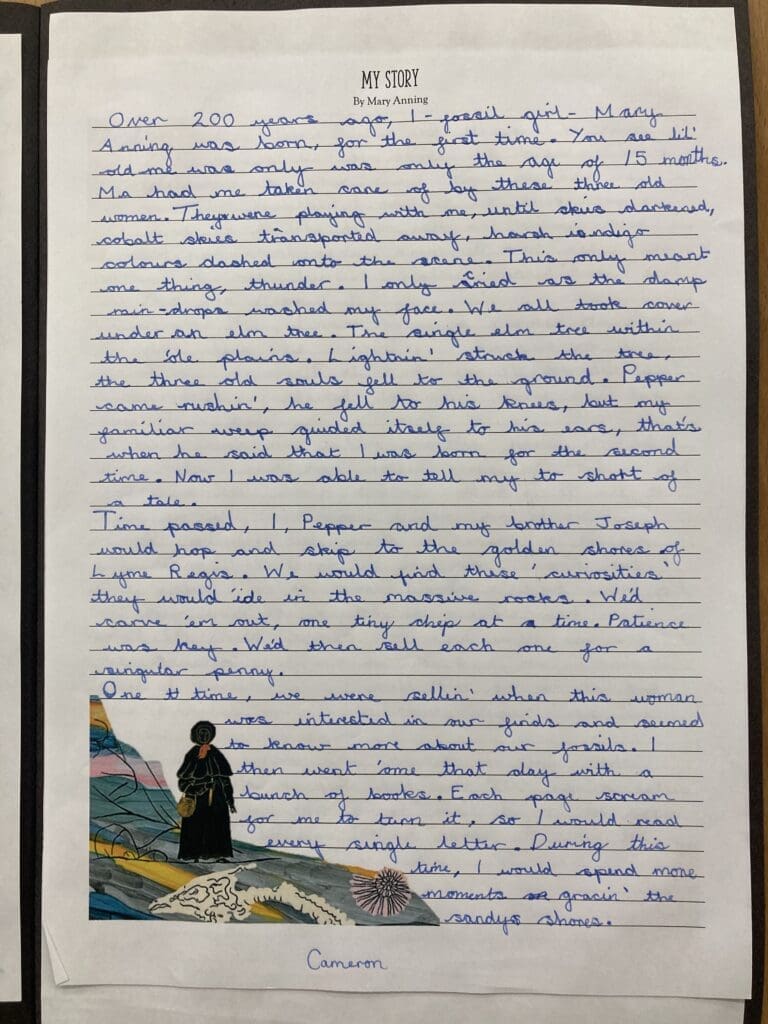 MY STORY
By Mary Anning
Over 200 years ago, I - fossil girl - Mary
Anning was born, for the first time. You see lil'
old me was only was only the age of 15 months.
Ma had me taken care of by these three old
women. They were playing with me, until skies darkened,
cobalt skies transported away, harsh indigo
colours dashed onto the scene. This only meant
one thing, thunder. I only cried as the damp
rain-drops washed my face. We all took cover
under an elm tree. The single elm tree within
the 'ole plains. Lightnin' struck the tree,
the three old souls fell to the ground. Pepper
came rushin', he fell to his knees, but my
familiar weep guided itself to his ears, that's
when he said that I was born for the second
time. Now I was able to tell my to short of
a tale.
Time passed, I, Pepper and my brother Joseph
would hop and skip to the golden shores of
Lyme Regis. We would find these 'curiosities'
they would 'ide in the massive rocks. We'd
carve 'em out, one tiny chip at a time. Patience
was key. We'd then sell each one for a
singular penny.
One time, we were sellin' when this woman
was interested in our finds and seemed
to know more about our fossils. I
then went 'ome that day with a
bunch of books. Each page scream
for me to turn it, so I would read
every single letter. During this
time, I would spend more
moments gracin' the
sandy shores.
Cameron